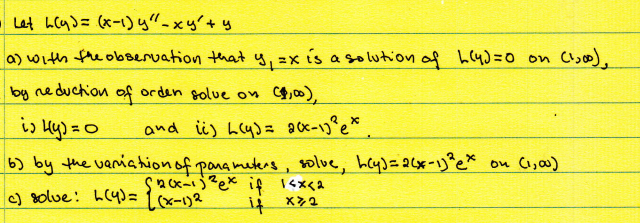 Let L(y) = (x-1) y'' - x y' + y
a) with the observation that y₁ = x is a solution of L(y) = 0 on (1,∞),
by reduction of order solve on (1,∞),
i) L(y) = 0 and ii) L(y) = 2(x-1)²eˣ.
b) by the variation of parameters, solve, L(y) = 2(x-1)²eˣ on (1,∞)
c) solve: L(y) = { 2(x-1)²eˣ if 1<x<2
(x-1)² if x≥2